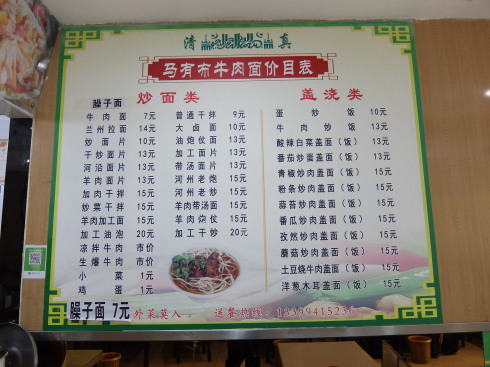 清 真
马有布牛肉面价目表
炒面类
臊子面
牛肉面 7元
兰州拉面 14元
炒面片 13元
干炒面片 13元
河沿面片 13元
羊肉面片 13元
加肉干拌 15元
炒菜干拌 15元
羊肉加工面 15元
加工油泡 20元
凉拌牛肉 市价
生爆牛肉 市价
小菜 1元
鸡蛋 1元
普通干拌 9元
大卤面 10元
油炮仗面 13元
加工面片 13元
带汤面片 13元
河州老炮 15元
河州老炒 15元
羊肉带汤面 15元
羊肉炮仗 15元
加工干炒 20元
盖浇类
蛋炒饭 10元
牛肉炒饭 13元
酸辣白菜盖面（饭） 13元
番茄炒蛋盖面（饭） 13元
青椒炒肉盖面（饭） 15元
粉条炒肉盖面（饭） 15元
蒜苔炒肉盖面（饭） 15元
番瓜炒肉盖面（饭） 15元
孜然炒肉盖面（饭） 15元
蘑菇炒肉盖面（饭） 15元
土豆烧牛肉盖面（饭） 15元
洋葱木耳盖面（饭） 15元
臊子面 7元 外菜莫入。 送餐热线：13399415236